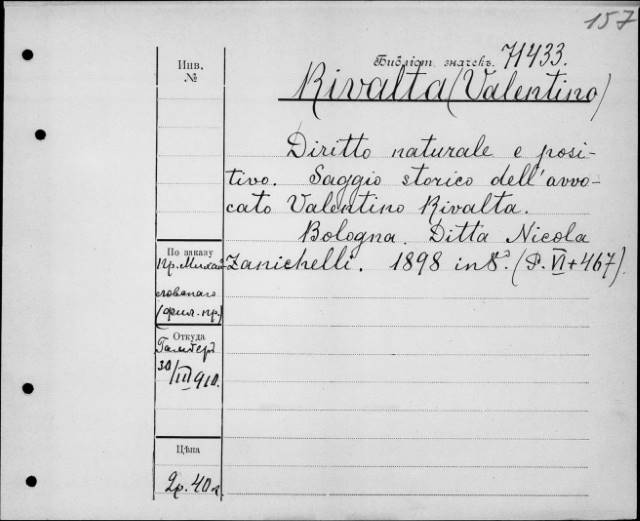 157
Инв.
№
Библіот. значекъ. 71433.
Rivalta (Valentino)
Diritto naturale e posi-
tivo. Saggio storico dell'avvo-
cato Valentino Rivalta.
Bologna. Ditta Nicola
Zanichelli. 1898 in 8º. (P. VI+467).
По заказу
Пр. Михай-
ловскаго
(фил. пр.)
Откуда
30/III 910.
Цѣна
2р. 40к.